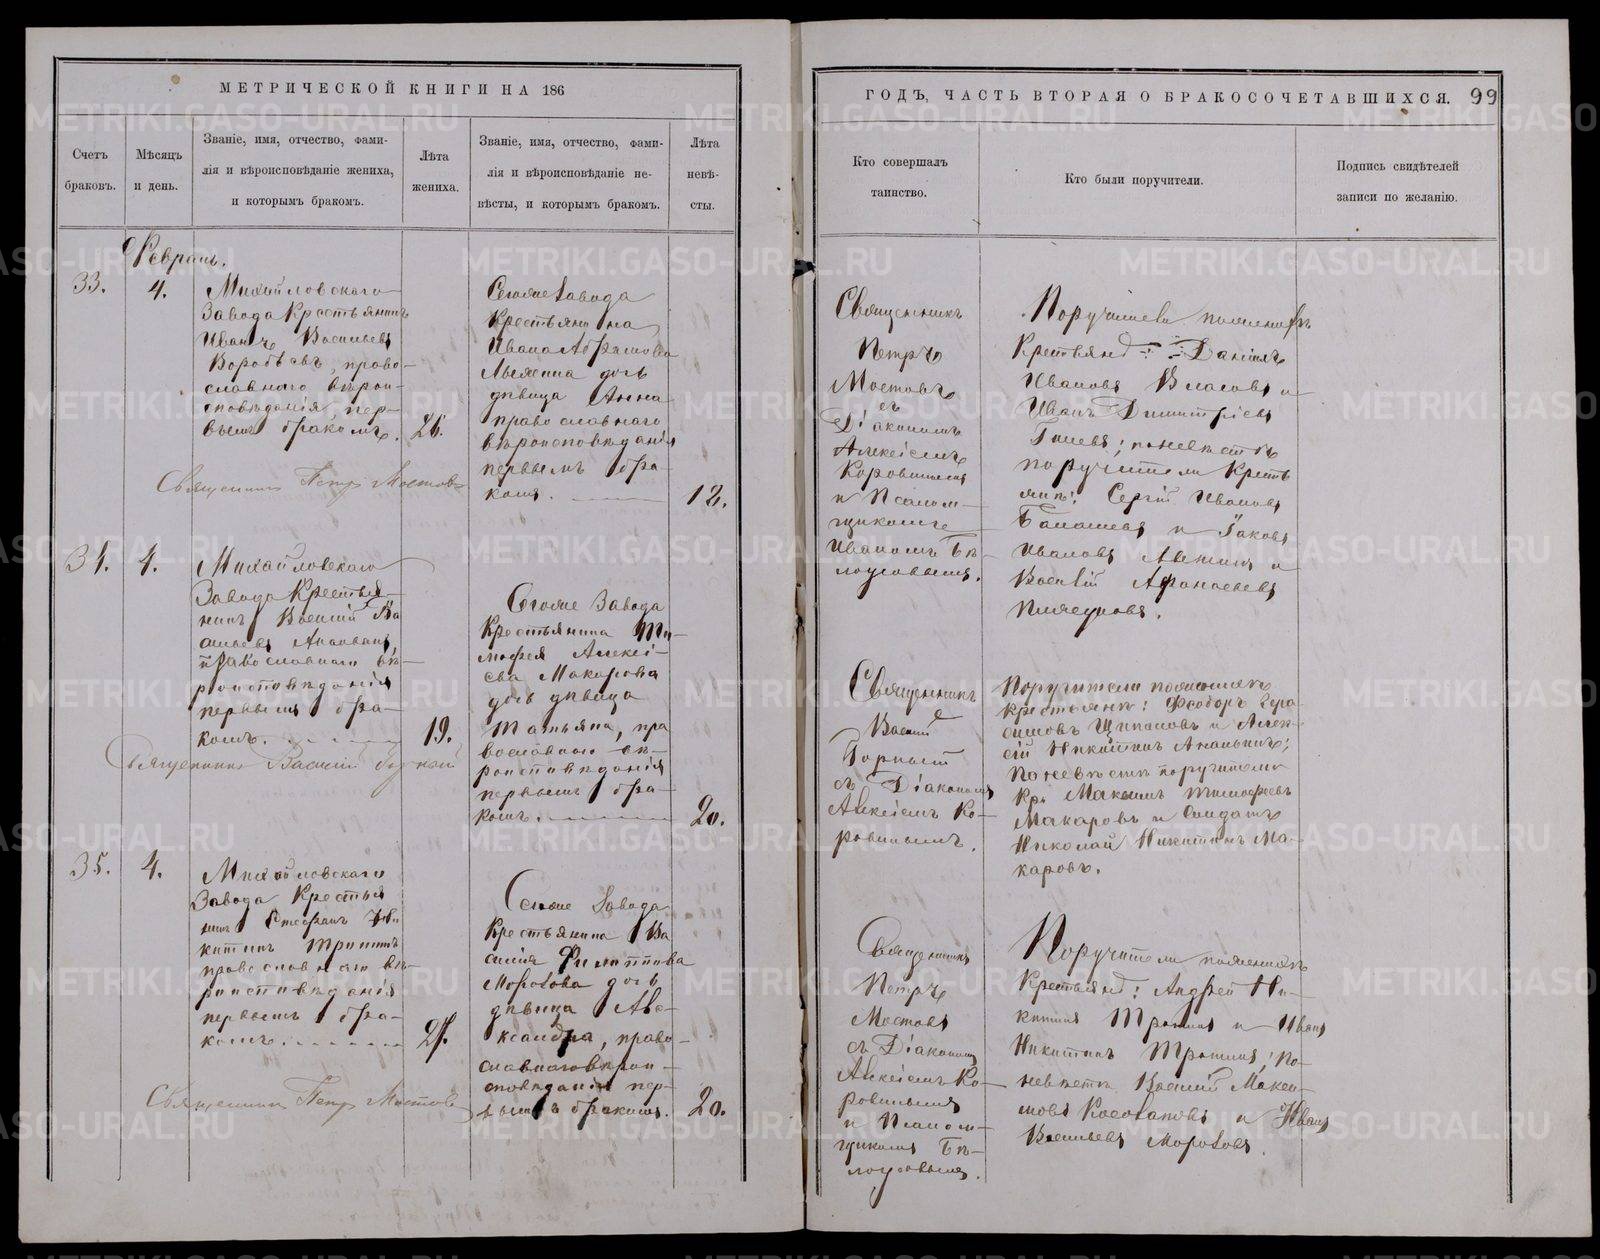 МЕТРИЧЕСКОЙ КНИГИ НА 186
ГОДЪ, ЧАСТЬ ВТОРАЯ О БРАКОСОЧЕТАВШИХСЯ.
99
Счетъ
браковъ.
Мѣсяцъ
и день.
Званіе, имя, отчество, фами-
лія и вѣроисповѣданіе жениха,
и которымъ бракомъ.
Лѣта
жениха.
Званіе, имя, отчество, фами-
лія и вѣроисповѣданіе не-
вѣсты, и которымъ бракомъ.
Лѣта
невѣ-
сты.
Кто совершалъ
таинство.
Кто были поручители.
Подпись свидѣтелей
записи по желанію.
Февраль.
33.
4.
Михайловскаго
Завода Крестьянинъ
Иванъ Васильевъ
Воробьевъ, право-
славнаго вѣрои-
сповѣданія, пер-
вымъ бракомъ.
Священникъ Петръ Мостовъ
Сегоже Завода
Крестьянина
Ивана
дочь
дѣвица Анна
православнаго
вѣроисповѣданія
первымъ бра-
комъ.
Священникъ
Петръ
Мостовъ
съ
Діакономъ
Алексіемъ
Коровинымъ
и Псалом-
щикомъ
Иваномъ Бѣ-
лоусовымъ.
Поручители по женихѣ
Крестьяне: Даніилъ
Ивановъ Власовъ и
Иванъ Димитріевъ
по невѣстѣ
поручители Кресть
яне: Сергій Ивановъ
и Іаковъ
Ивановъ и
Василій Афанасьевъ
34.
4.
Михайловскаго
Завода Крестья-
нинъ Василій Ва
сильевъ
православнаго вѣ-
роисповѣданія
первымъ бра-
комъ.
19.
Священникъ Василій
Сегоже Завода
Крестьянина Ти-
мофея Алексі-
ева Макарова
дочь дѣвица
Татьяна, пра
вославнаго вѣ-
роисповѣданія
первымъ бра-
комъ.
20.
Священникъ
Василій
съ Діакономъ
Алексіемъ Ко-
ровинымъ.
Поручители по женихѣ
крестьяне: Феодоръ Гера-
симовъ Щипановъ и Алек-
сій Никитинъ Ананьинъ;
По невѣстѣ поручители
Кр. Максимъ Тимофеевъ
Макаровъ и Солдатъ
Николай Никитинъ Ма-
каровъ.
35.
4.
Михайловскаго
Завода Крестья
нинъ Стефанъ Ни
китинъ
православнаго вѣ-
роисповѣданія
первымъ бра-
комъ.
Священникъ Петръ Мостовъ
Сегоже Завода
Крестьянина Ва
силія Филиппова
Морозова дочь
дѣвица Але-
ксандра, право-
славнаго вѣрои-
сповѣданія пер-
вымъ бракомъ.
20.
Священникъ
Петръ
Мостовъ
съ Діакономъ
Алексіемъ Ко-
ровинымъ
и Псалом-
щикомъ Бѣ-
лоусовымъ.
Поручители по женихѣ
Крестьяне: Андрей Ни-
китинъ и Иванъ
Никитинъ по
невѣстѣ Василій Макси-
мовъ Косолаповъ и Иванъ
Васильевъ Морозовъ.
METRIKI.GASO-URAL.RU